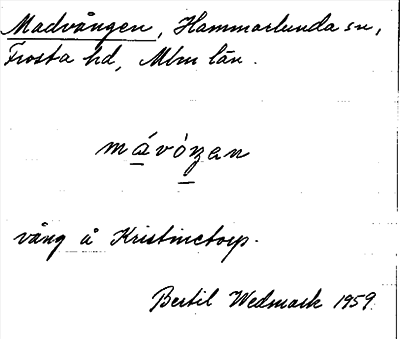 Madvången, Hammarlunda sn,
Frosta hd, Mlm län.
mávòŋen
vång å Kristinetorp.
Bertil Wedmark 1959.